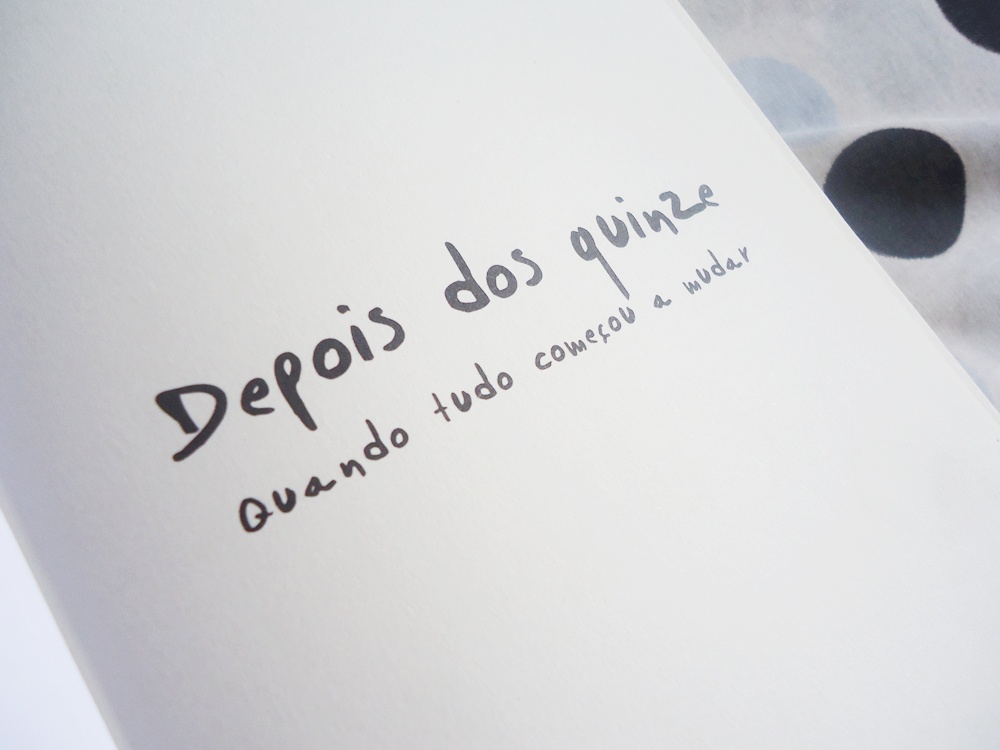 Depois dos quinze
Quando tudo começou a mudar